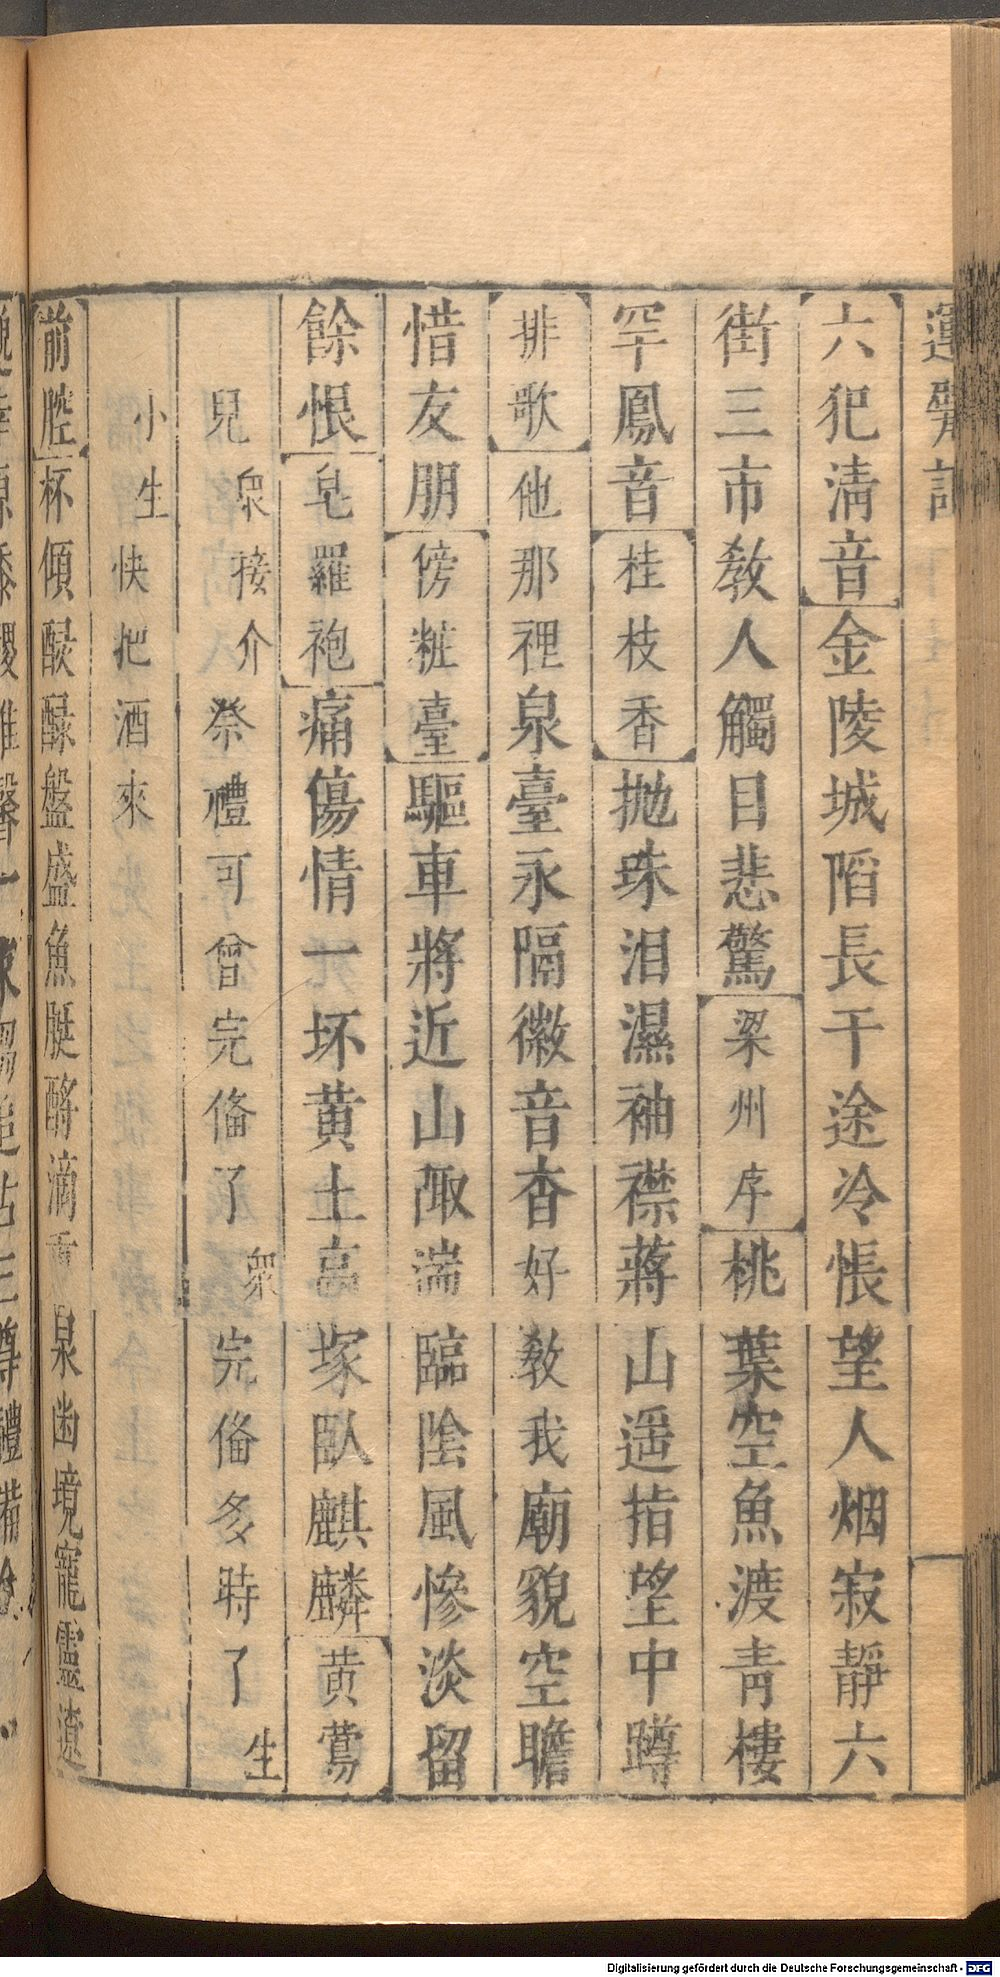 運甓記
六犯淸音金陵城䧟長干途冷悵望人烟寂靜六
街三市敎人觸目悲驚梁州序桃葉空魚渡靑樓
罕鳳音桂枝香抛珠泪濕袖襟蔣山遥指望中蹲
排歌他那裡泉臺永隔徽音杳好敎我廟貌空瞻
惜友朋傍粧臺驅車將近山陬湍臨陰風慘淡留
餘恨皂羅袍痛傷情一坏黄土高塚臥麒麟黄鶯
兒衆接介祭禮可曾完俻了衆完俻多時了生
小生快把酒來
前腔杯傾醁醁盤盛魚脡酹滴重泉幽境寵靈遼
Digitalisierung gefördert durch die Deutsche Forschungsgemeinschaft - DFG